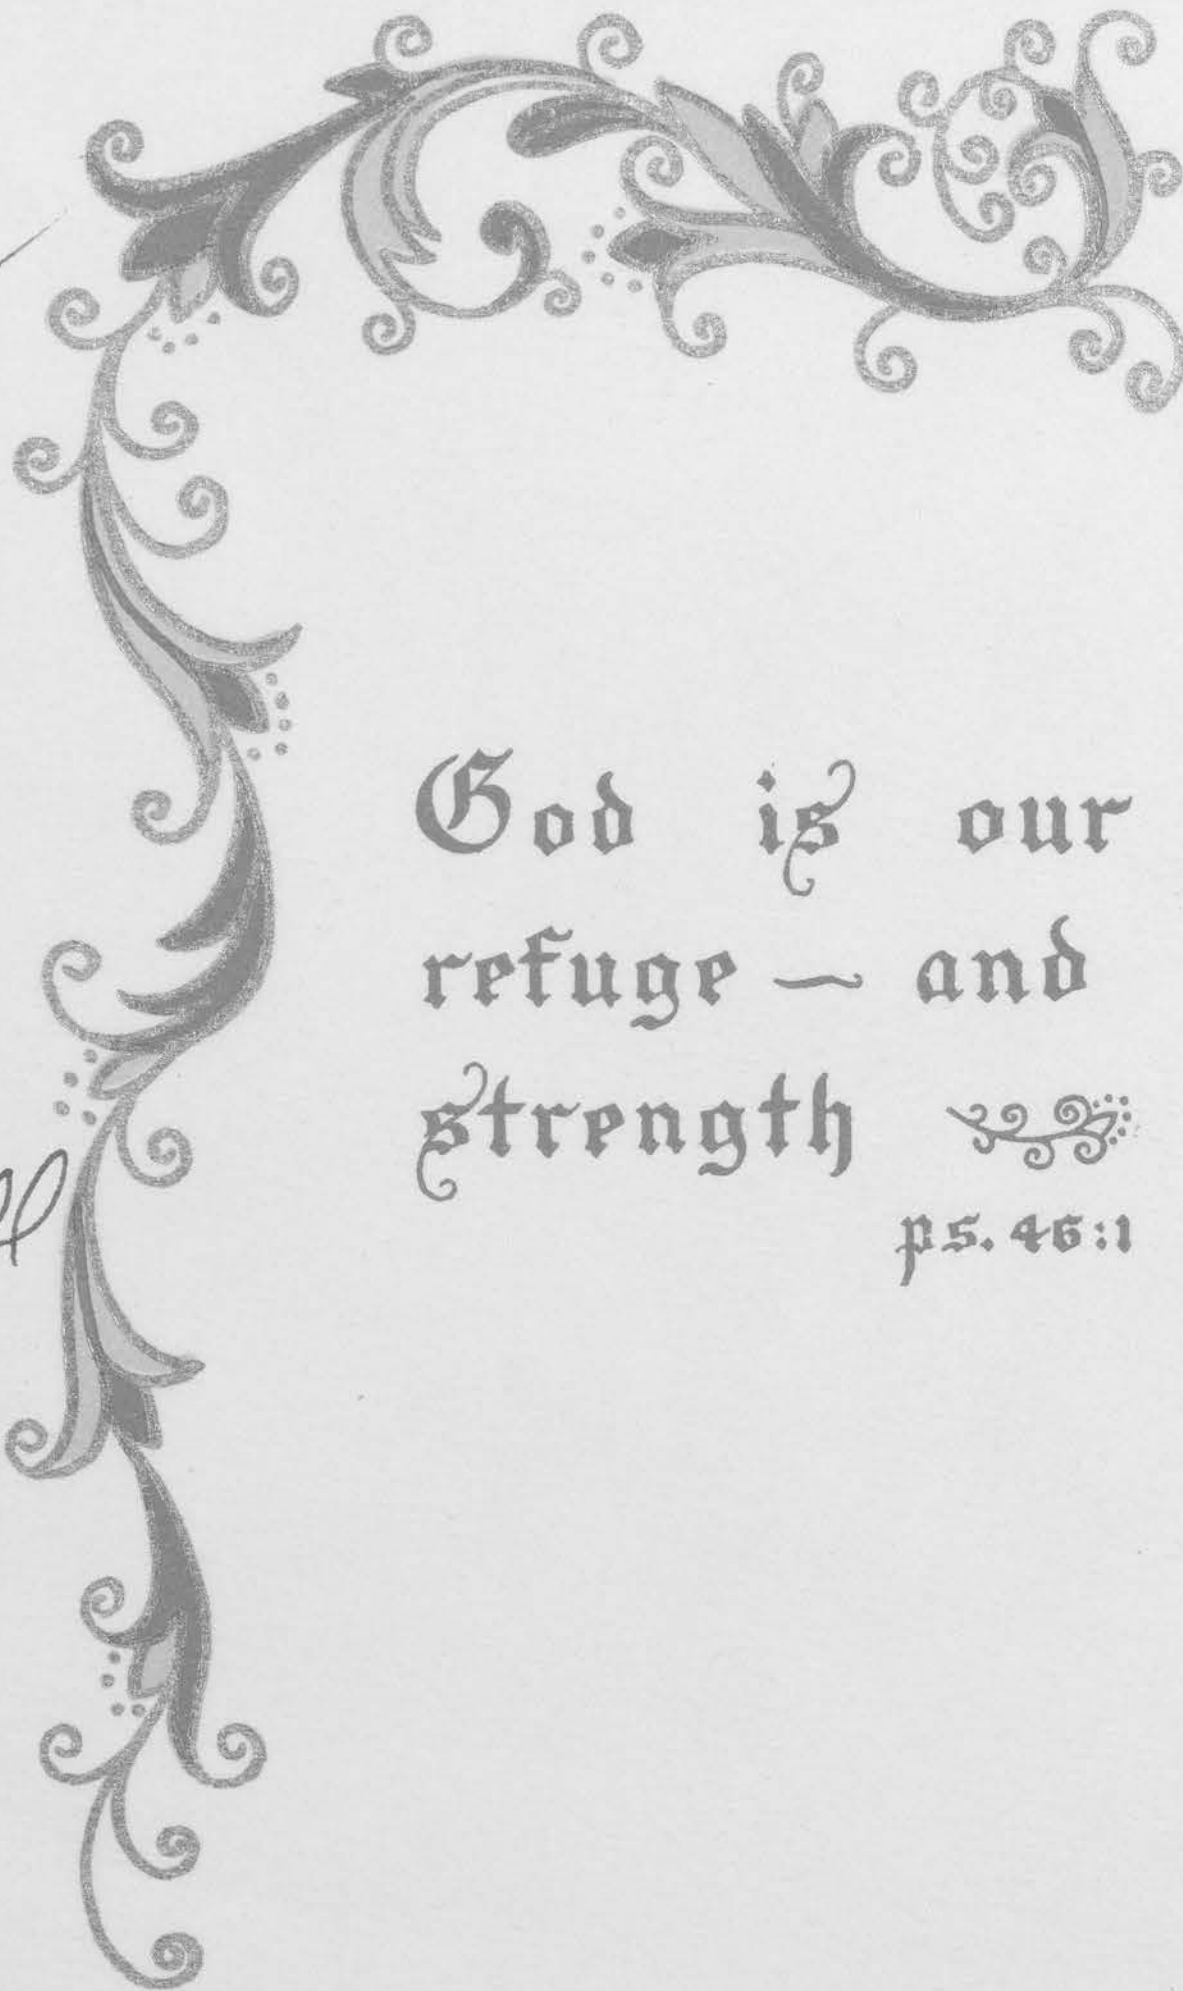 God is our
refuge — and
strength
ps. 46:1